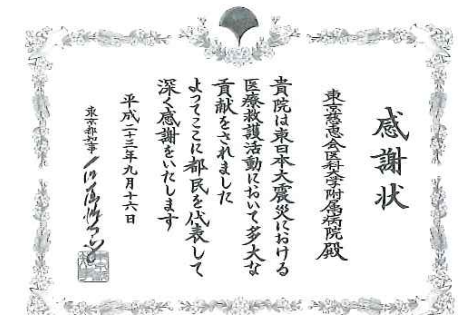 感謝状
東京慈恵会医科大学附属病院 殿
貴院は東日本大震災における
医療救護活動において多大な
貢献をされました
よってここに都民を代表して
深く感謝をいたします
平成二十三年九月十六日
東京都知事